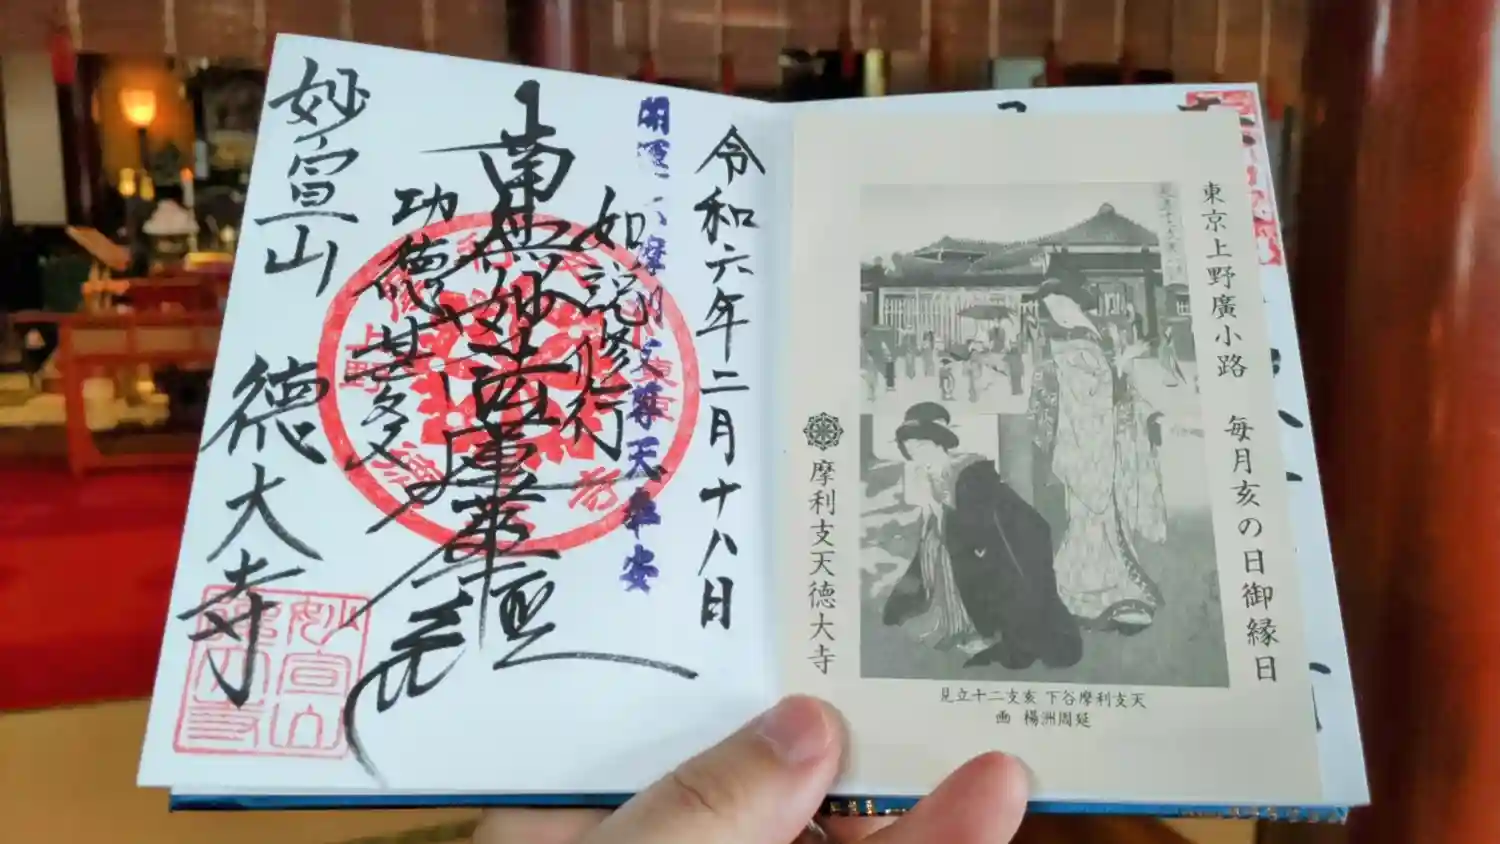 東京上野廣小路 毎月亥の日御縁日
天支利摩谷下 亥支二十立見
延周洲楊 画
摩利支天徳大寺
令和六年二月十八日
開運 摩利支尊天 安
如説修行
南無妙法蓮華経
功徳甚多
妙宣山 徳大寺
妙宣山